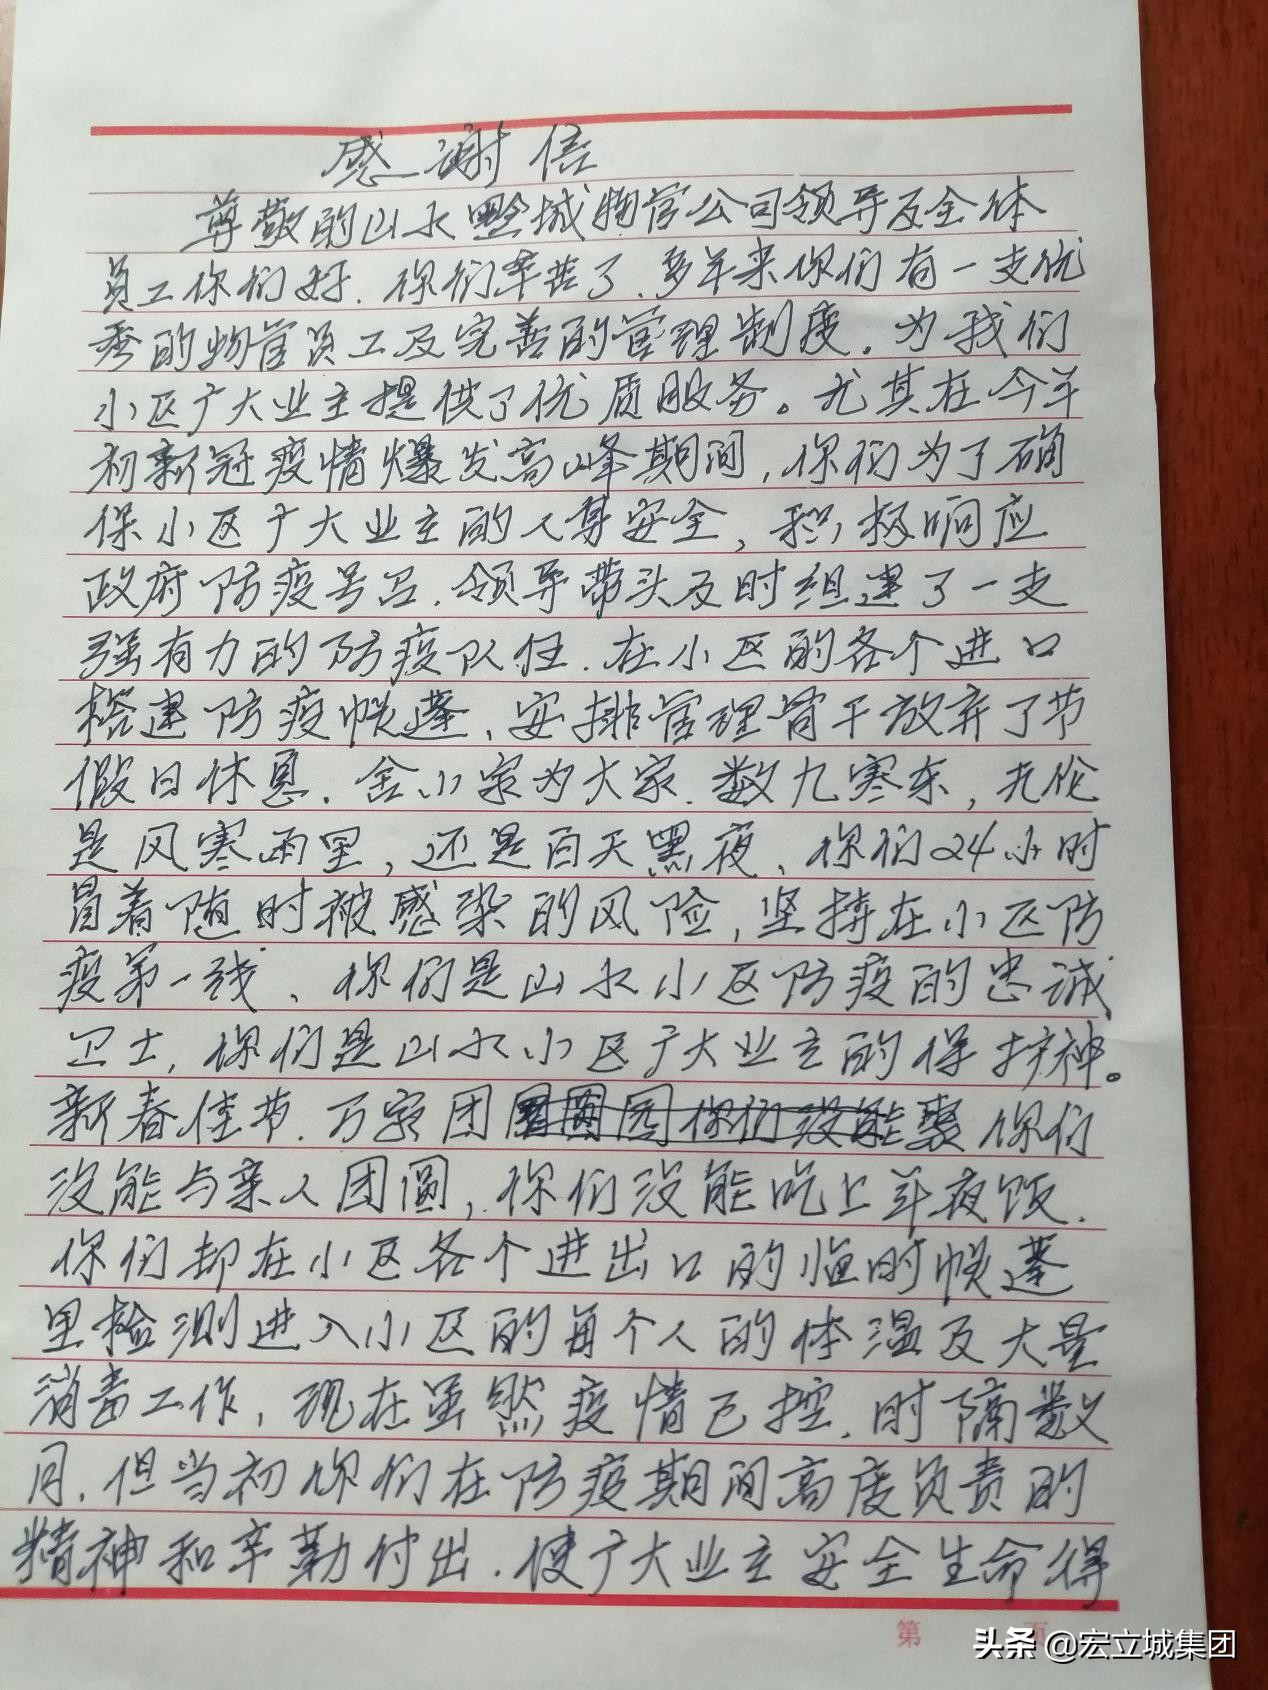 感谢信
尊敬的山水黔城物管公司领导及全体
员工你们好.你们辛苦了.多年来你们有一支优
秀的物管员工及完善的管理制度。为我们
小区广大业主提供了优质服务。尤其在今年
初新冠疫情爆发高峰期间,你们为了确
保小区广大业主的人身安全,积极响应
政府防疫号召.领导带头及时组建了一支
强有力的防疫队伍.在小区的各个进口
搭建防疫帐蓬、安排管理骨干放弃了节
假日休息.舍小家为大家.数九寒冬,无伦
是风寒雨里,还是白天黑夜、你们24小时
冒着随时被感染的风险,坚持在小区防
疫第一线、你们是山水小区防疫的忠诚
卫士,你们是山水小区广大业主的保护神。
新春佳节.万家团圆你们没能聚你们
没能与亲人团圆,你们没能吃上年夜饭.
你们却在小区各个进出口的临时帐蓬
里检测进入小区的每个人的体温及大量
消毒工作,现在虽然疫情已控.时隔数
月.但当初你们在防疫期间高度负责的
精神和辛勤付出.使广大业主安全生命得
第 页
头条 @宏立城集团